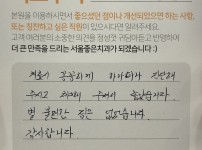 본원을 이용하시면서 좋으셨던 점이나 개선되었으면 하는 사항,
또는 칭찬하고 싶은 직원이 있으시다면 알려주세요.
고객 여러분의 소중한 의견을 정성껏 귀담아듣고 반영하여
더 큰 만족을 드리는 서울좋은치과가 되겠습니다 :)
치료시 꼼꼼하게 하나하나 진단해
주시고 치료해 주셔서 좋았습니다.
별 불편한 점은 없었습니다.
감사합니다.